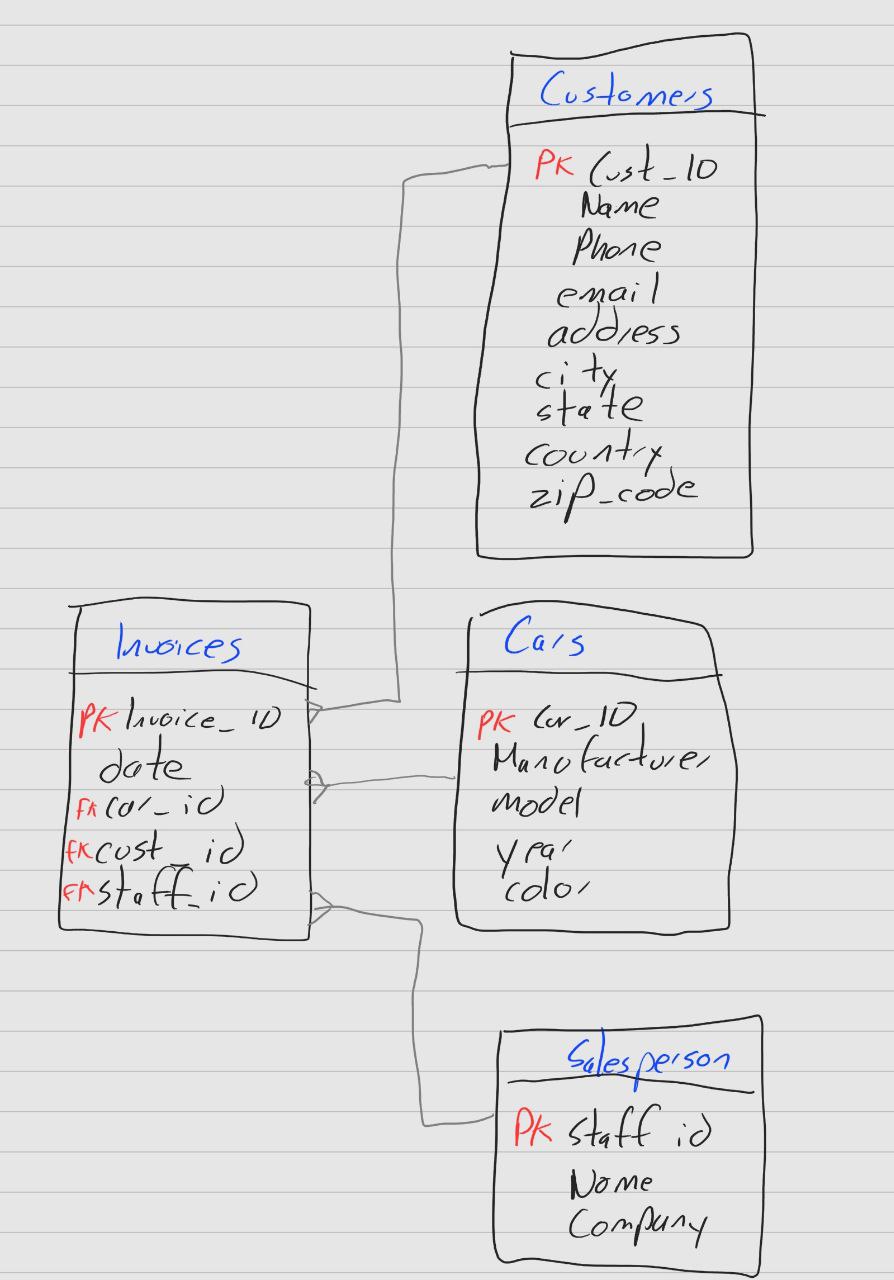 Customers
PK Cust_ID
Name
Phone
email
address
city
state
country
zip_code
Invoices
PK Invoice_ID
date
FK car_id
FK cust_id
FK staff_id
Cars
PK Car_ID
Manufacturer
model
year
color
Salesperson
PK staff id
Name
Company